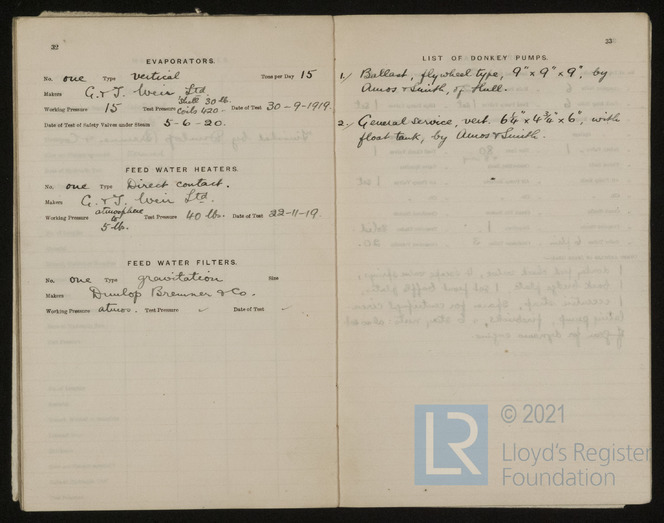 32
EVAPORATORS.
No. one Type vertical Tons per Day 15
Makers G. & J. Weir Ltd
Working Pressure 15 Test Pressure Shell 30 lb. Coils 420. Date of Test 30-9-1919.
Date of Test of Safety Valves under Steam 5-6-20.
FEED WATER HEATERS.
No. one Type Direct contact.
Makers G. & J. Weir Ltd.
Working Pressure atmosphere to 5 lb. Test Pressure 40 lb. Date of Test 22-11-19.
FEED WATER FILTERS.
No. one Type gravitation Size
Makers Dunlop Bremner & Co.
Working Pressure atmos. Test Pressure ✓ Date of Test ✓
33
LIST OF DONKEY PUMPS.
1./ Ballast, flywheel type, 9" x 9" x 9", by
Amos & Smith, of Hull.
2./ General service, vert. 6¼" x 4¾" x 6", with
float tank, by Amos & Smith.
LR
© 2021
Lloyd's Register
Foundation